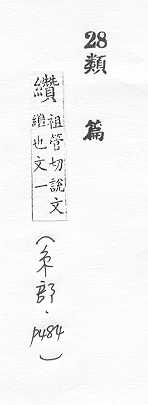 28類篇
纘祖管切說文
繼也文一
(糸部·p484)